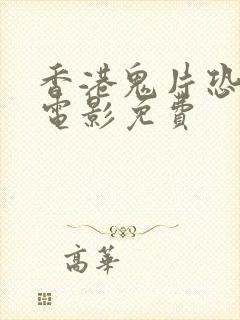 香港鬼片恐
電影免費
高華